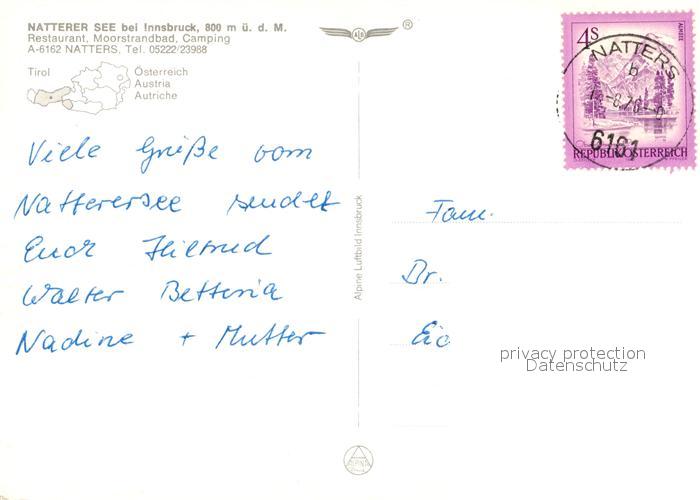 NATTERER SEE bei Innsbruck, 800 m ü. d. M.
Restaurant, Moorstrandbad, Camping
A-6162 NATTERS, Tel. 05222/23988
Tirol
Österreich
Austria
Autriche
®
4s
ALMSEE
NATTERS
b
6161
REPUBLIK ÖSTERREICH
Viele Grüße vom
Natterersee sendet
Euch Hiltrud
Walter Bettina
Nadine + Mutter
Alpine Luftbild Innsbruck
Fam.
Dr.
Eic
privacy protection
Datenschutz